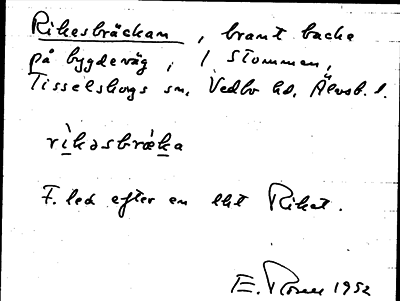 Rikesbräckan, brant backe
på bygdeväg, i Stommen,
Tisselskogs sn, Vedbo hd, Älvsb. l.
rìkəsbræ̀ka
F. led efter en ekt Riket.
E. 1952